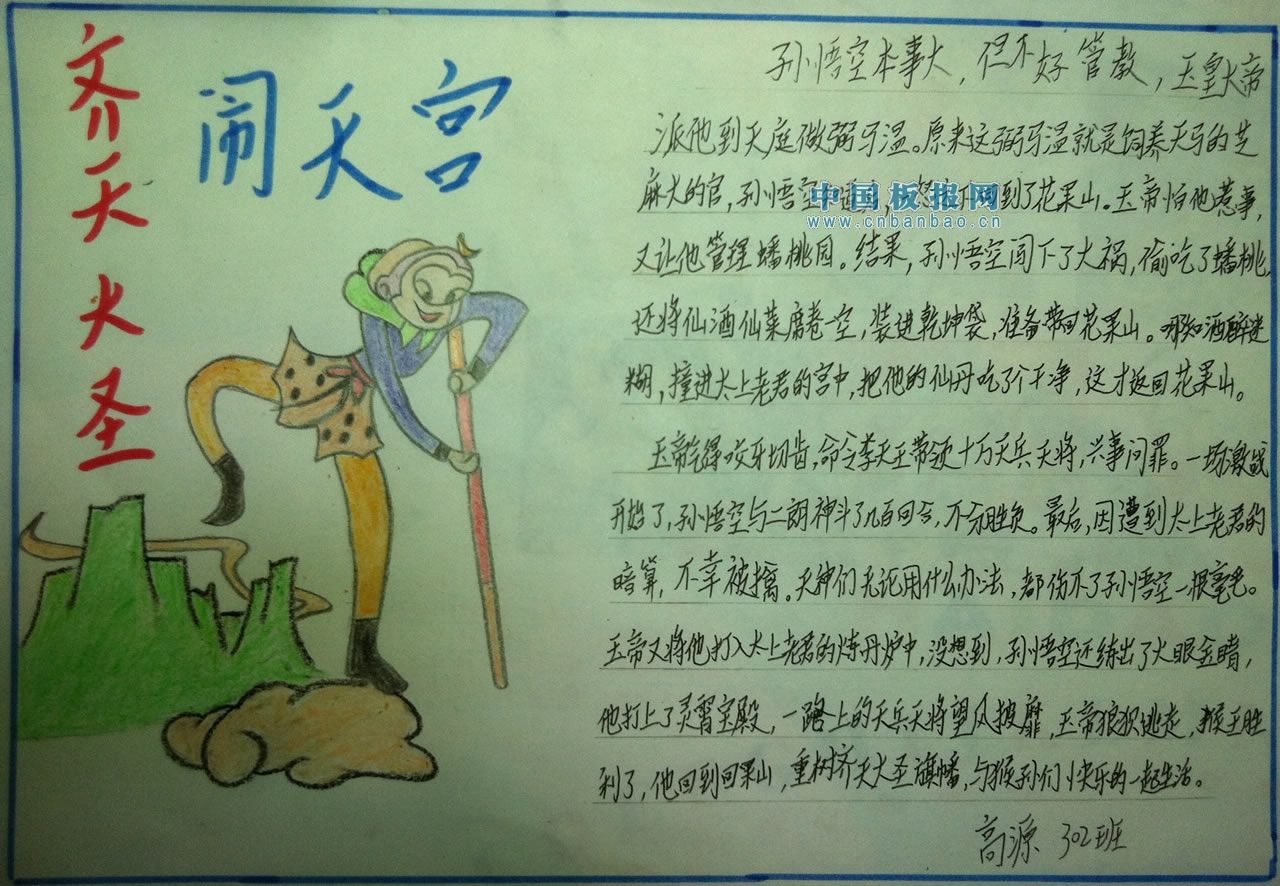 齐天大圣
闹天宫
孙悟空本事大，但不好管教，玉皇大帝
派他到天庭做弼马温。原来这弼马温就是饲养天马的芝
麻大的官，孙悟空 到了花果山。玉帝怕他惹事，
中国板报网
www.cnbanbao.cn
又让他管理蟠桃园。结果，孙悟空闯下了大祸，偷吃了蟠桃，
还将仙酒仙菜席卷一空，装进乾坤袋，准备带回花果山。哪知酒醉迷
糊，撞进太上老君的宫中，把他的仙丹吃了个干净，这才返回花果山。
玉帝气得咬牙切齿，命令李天王带领十万天兵天将，兴事问罪。一场激战
开始了，孙悟空与二朗神斗了几百回合，不分胜负。最后，因遭到太上老君的
暗算，不幸被擒。天神们无论用什么办法，都伤不了孙悟空一根毫毛。
玉帝又将他打入太上老君的炼丹炉中，没想到，孙悟空还练出了火眼金睛，
他打上了灵霄宝殿，一路上的天兵天将望风披靡，玉帝狼狈逃走，猴王胜
利了，他回到回果山，重树齐天大圣旗幡，与猴孙们快乐的一起生活。
高源 302班